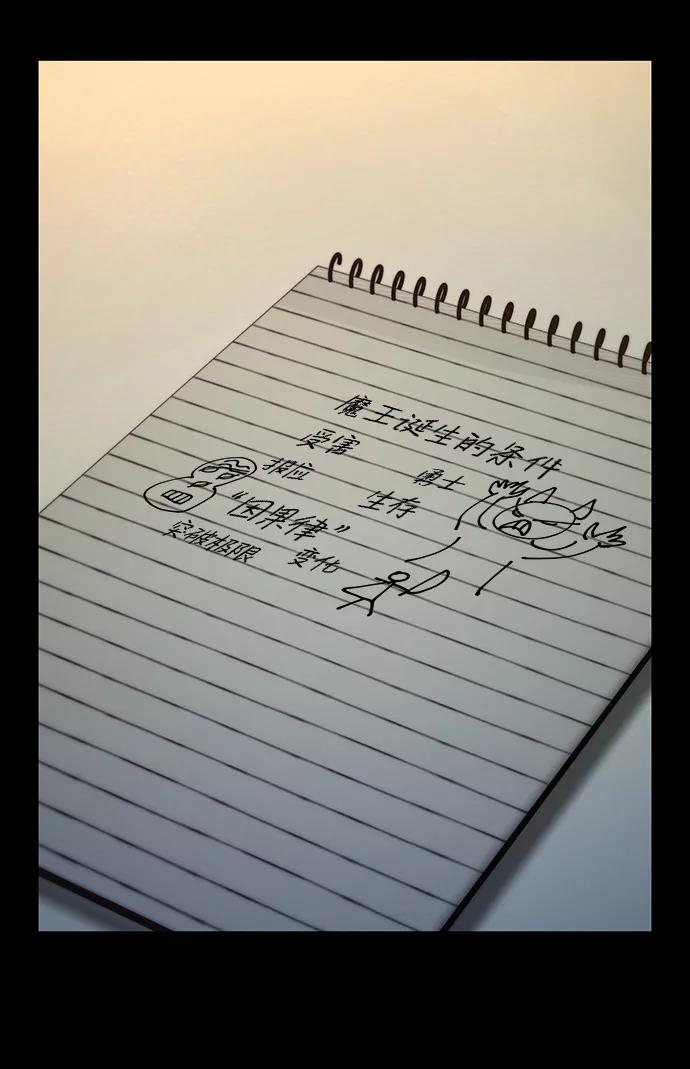 魔王诞生的条件
受害
勇士
报应
生存
“因果律”
突破极限
变化